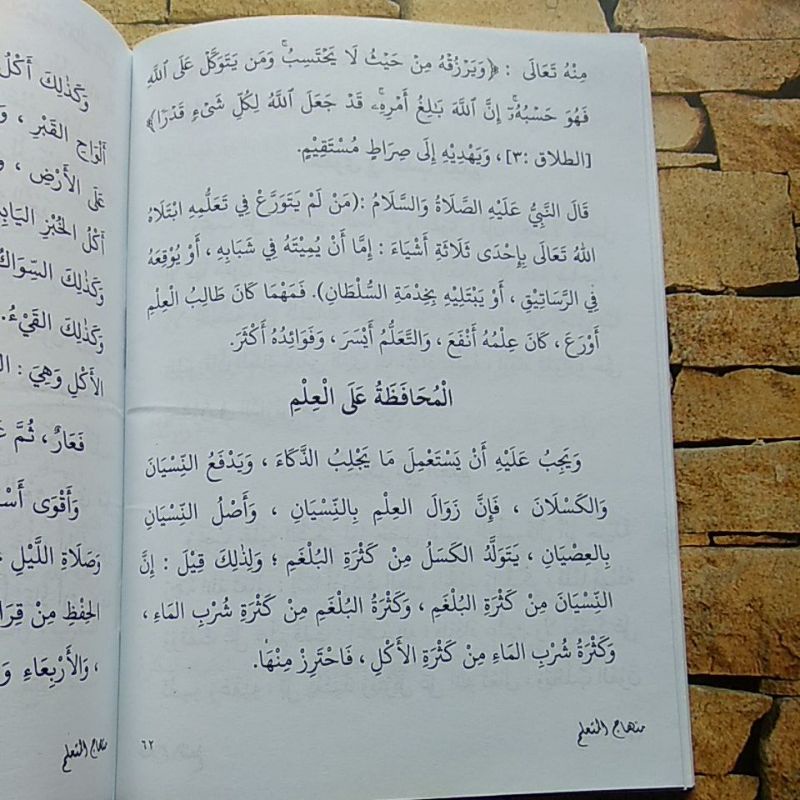 مِنْهُ تَعَالَى : ﴿وَيَرْزُقْهُ مِنْ حَيْثُ لَا يَحْتَسِبُ ۚ وَمَن يَتَوَكَّلْ عَلَى اللَّهِ
فَهُوَ حَسْبُهُ ۚ إِنَّ اللَّهَ بَالِغُ أَمْرِهِ ۚ قَدْ جَعَلَ اللَّهُ لِكُلِّ شَيْءٍ قَدْرًا﴾
[الطلاق :٣]، وَيَهْدِيْهِ إِلَى صِرَاطٍ مُسْتَقِيْمٍ.
قَالَ النَّبِيُّ عَلَيْهِ الصَّلَاةُ وَالسَّلَامُ :(مَنْ لَمْ يَتَوَرَّعْ فِي تَعَلُّمِهِ ابْتَلَاهُ
اللهُ تَعَالَى بِإِحْدَى ثَلَاثَةِ أَشْيَاءَ : إِمَّا أَنْ يُمِيْتَهُ فِي شَبَابِهِ ، أَوْ يُوْقِعَهُ
فِي الرَّسَاتِيْقِ ، أَوْ يَبْتَلِيْهِ بِخِدْمَةِ السُّلْطَانِ). فَمَهْمَا كَانَ طَالِبُ الْعِلْمِ
أَوْرَعَ ، كَانَ عِلْمُهُ أَنْفَعَ ، وَالتَّعَلُّمُ أَيْسَرَ ، وَفَوَائِدُهُ أَكْثَرَ.
الْمُحَافَظَةُ عَلَى الْعِلْمِ
وَيَجِبُ عَلَيْهِ أَنْ يَسْتَعْمِلَ مَا يَجْلِبُ الذَّكَاءَ ، وَيَدْفَعُ النِّسْيَانَ
وَالكَسْلَانَ ، فَإِنَّ زَوَالَ العِلْمِ بِالنِّسْيَانِ ، وَأَصْلُ النِّسْيَانِ
بِالعِصْيَانِ ، يَتَوَلَّدُ الكَسَلُ مِنْ كَثْرَةِ البُلْغَمِ ؛ وَلِذَلِكَ قِيْلَ : إِنَّ
النِّسْيَانَ مِنْ كَثْرَةِ البُلْغَمِ ، وَكَثْرَةُ البُلْغَمِ مِنْ كَثْرَةِ شُرْبِ المَاءِ ،
وَكَثْرَةُ شُرْبِ المَاءِ مِنْ كَثْرَةِ الأَكْلِ ، فَاحْتَرِزْ مِنْهَا.
منهاج المتعلم
٦٢
وَكَذَلِكَ أَكْلُ
أَلْوَاحِ القَبْرِ ،
عَلَى الأَرْضِ ،
أَكْلُ الخُبْزِ
وَكَذَلِكَ السِّوَاكُ
وَكَذَلِكَ القَيْءُ.
الأَكْلِ وَهِيَ :
فَعَارٌ ، ثُمَّ
وَأَقْوَى
وَصَلَاةِ اللَّيْلِ
الحِفْظِ مِنْ
، وَالأَرْبِعَاءِ
منهاج المتعلم